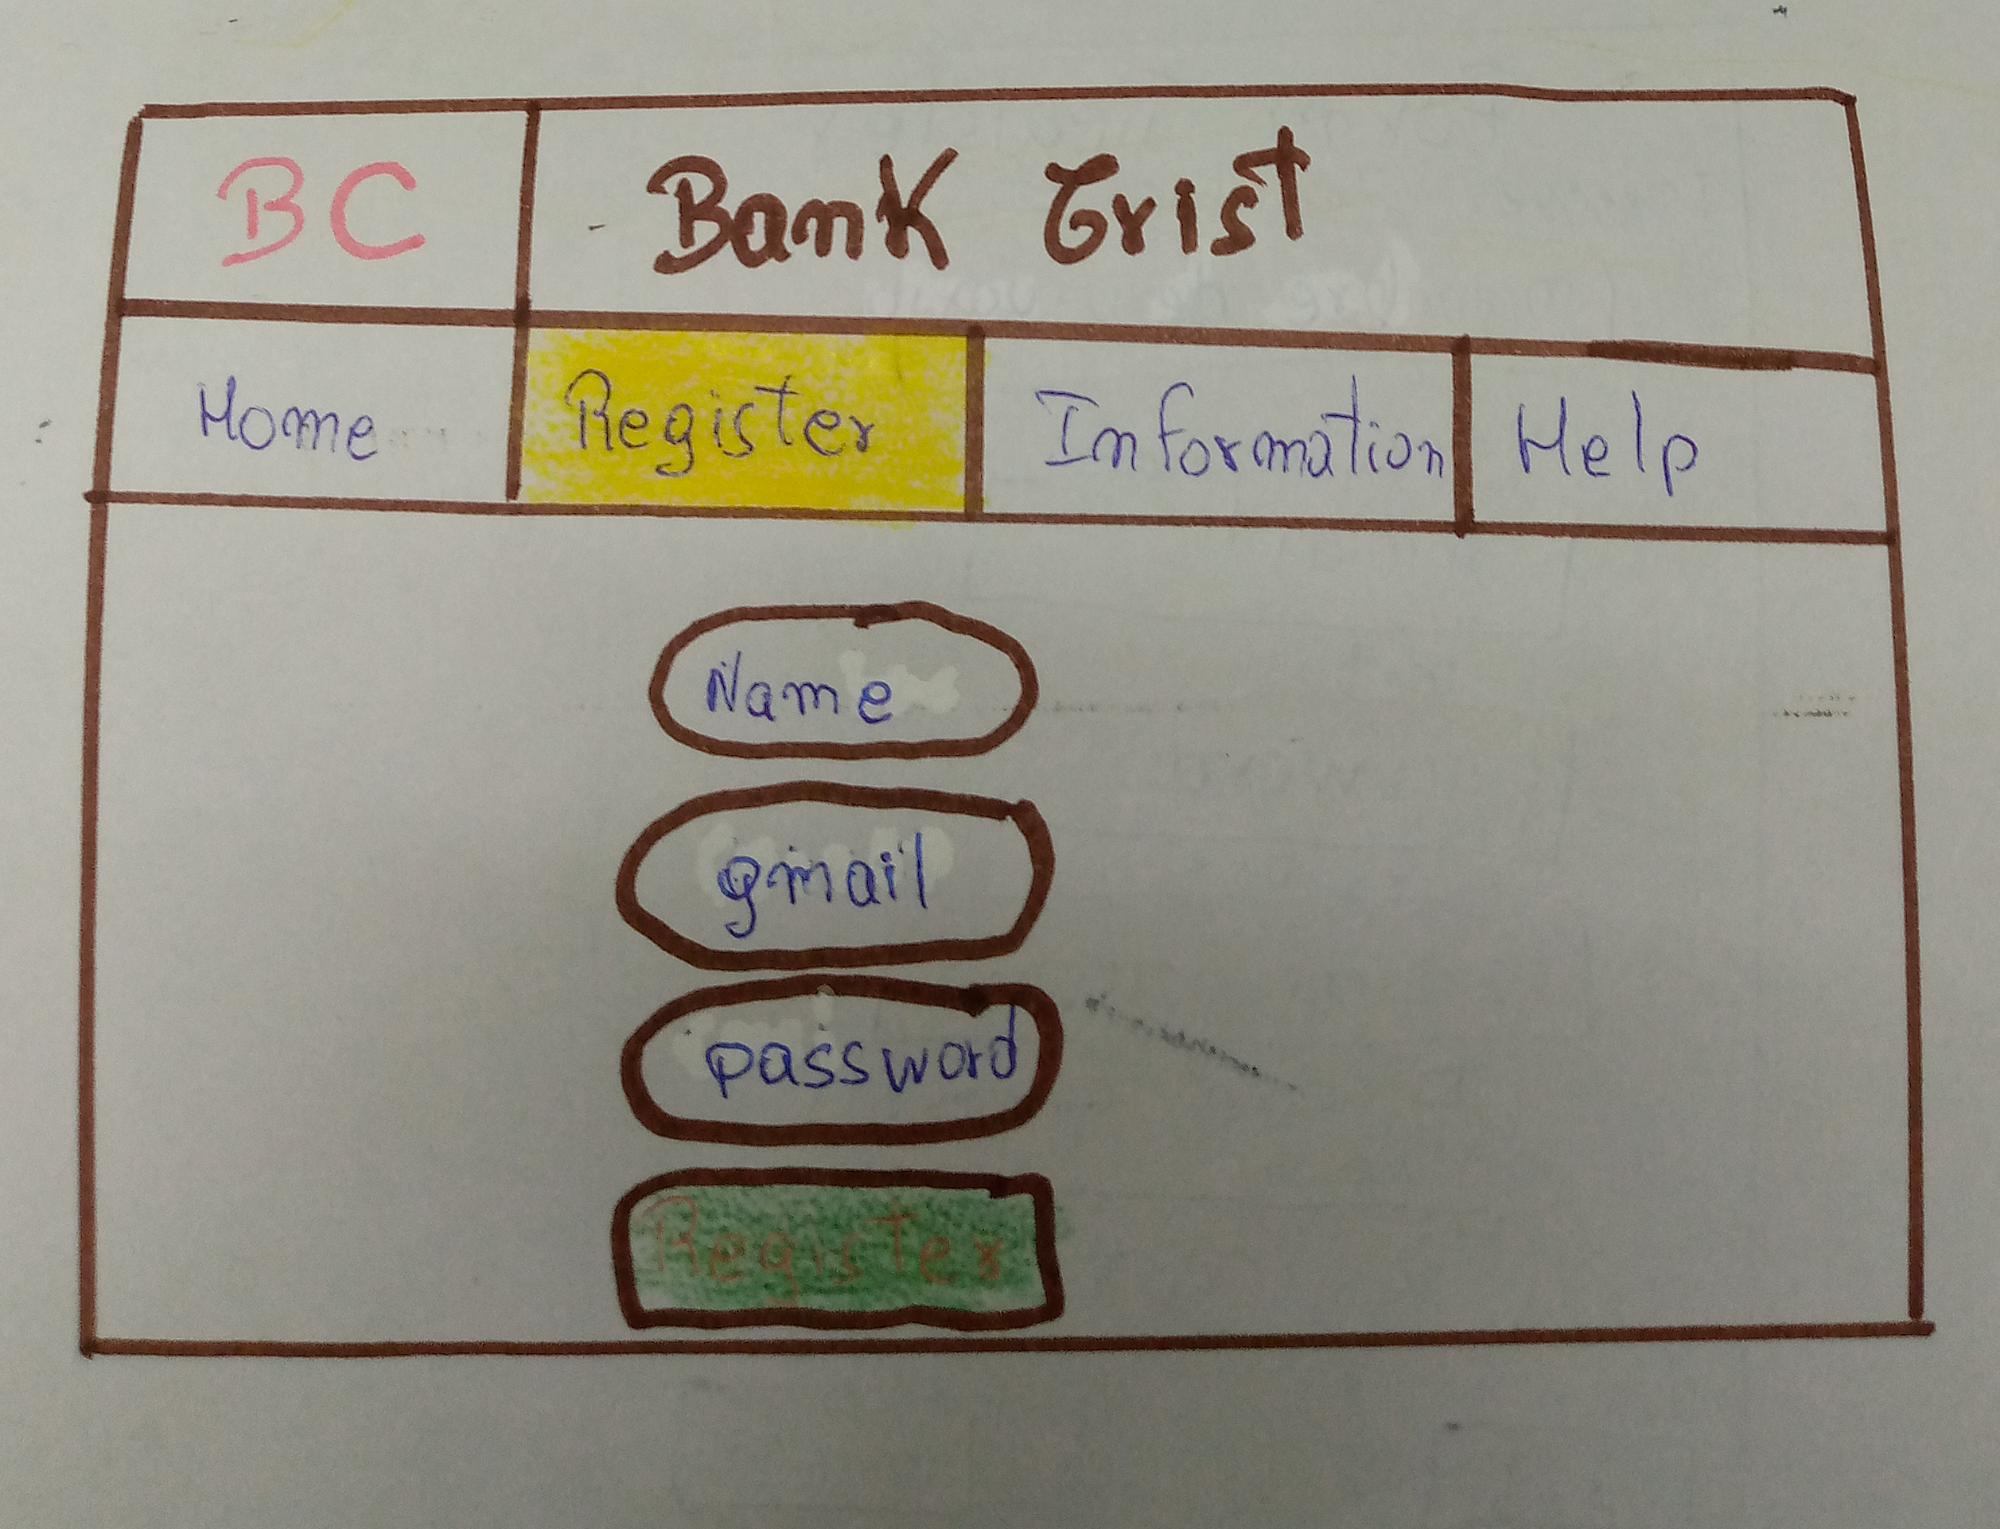 BC
Bank Crist
Home
Register
Information
Help
Name
gmail
password
Register